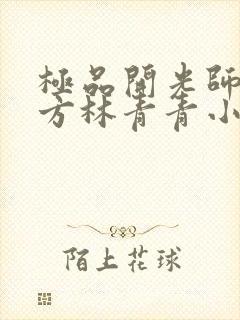 極品開光師
方林青青小
陌上花球